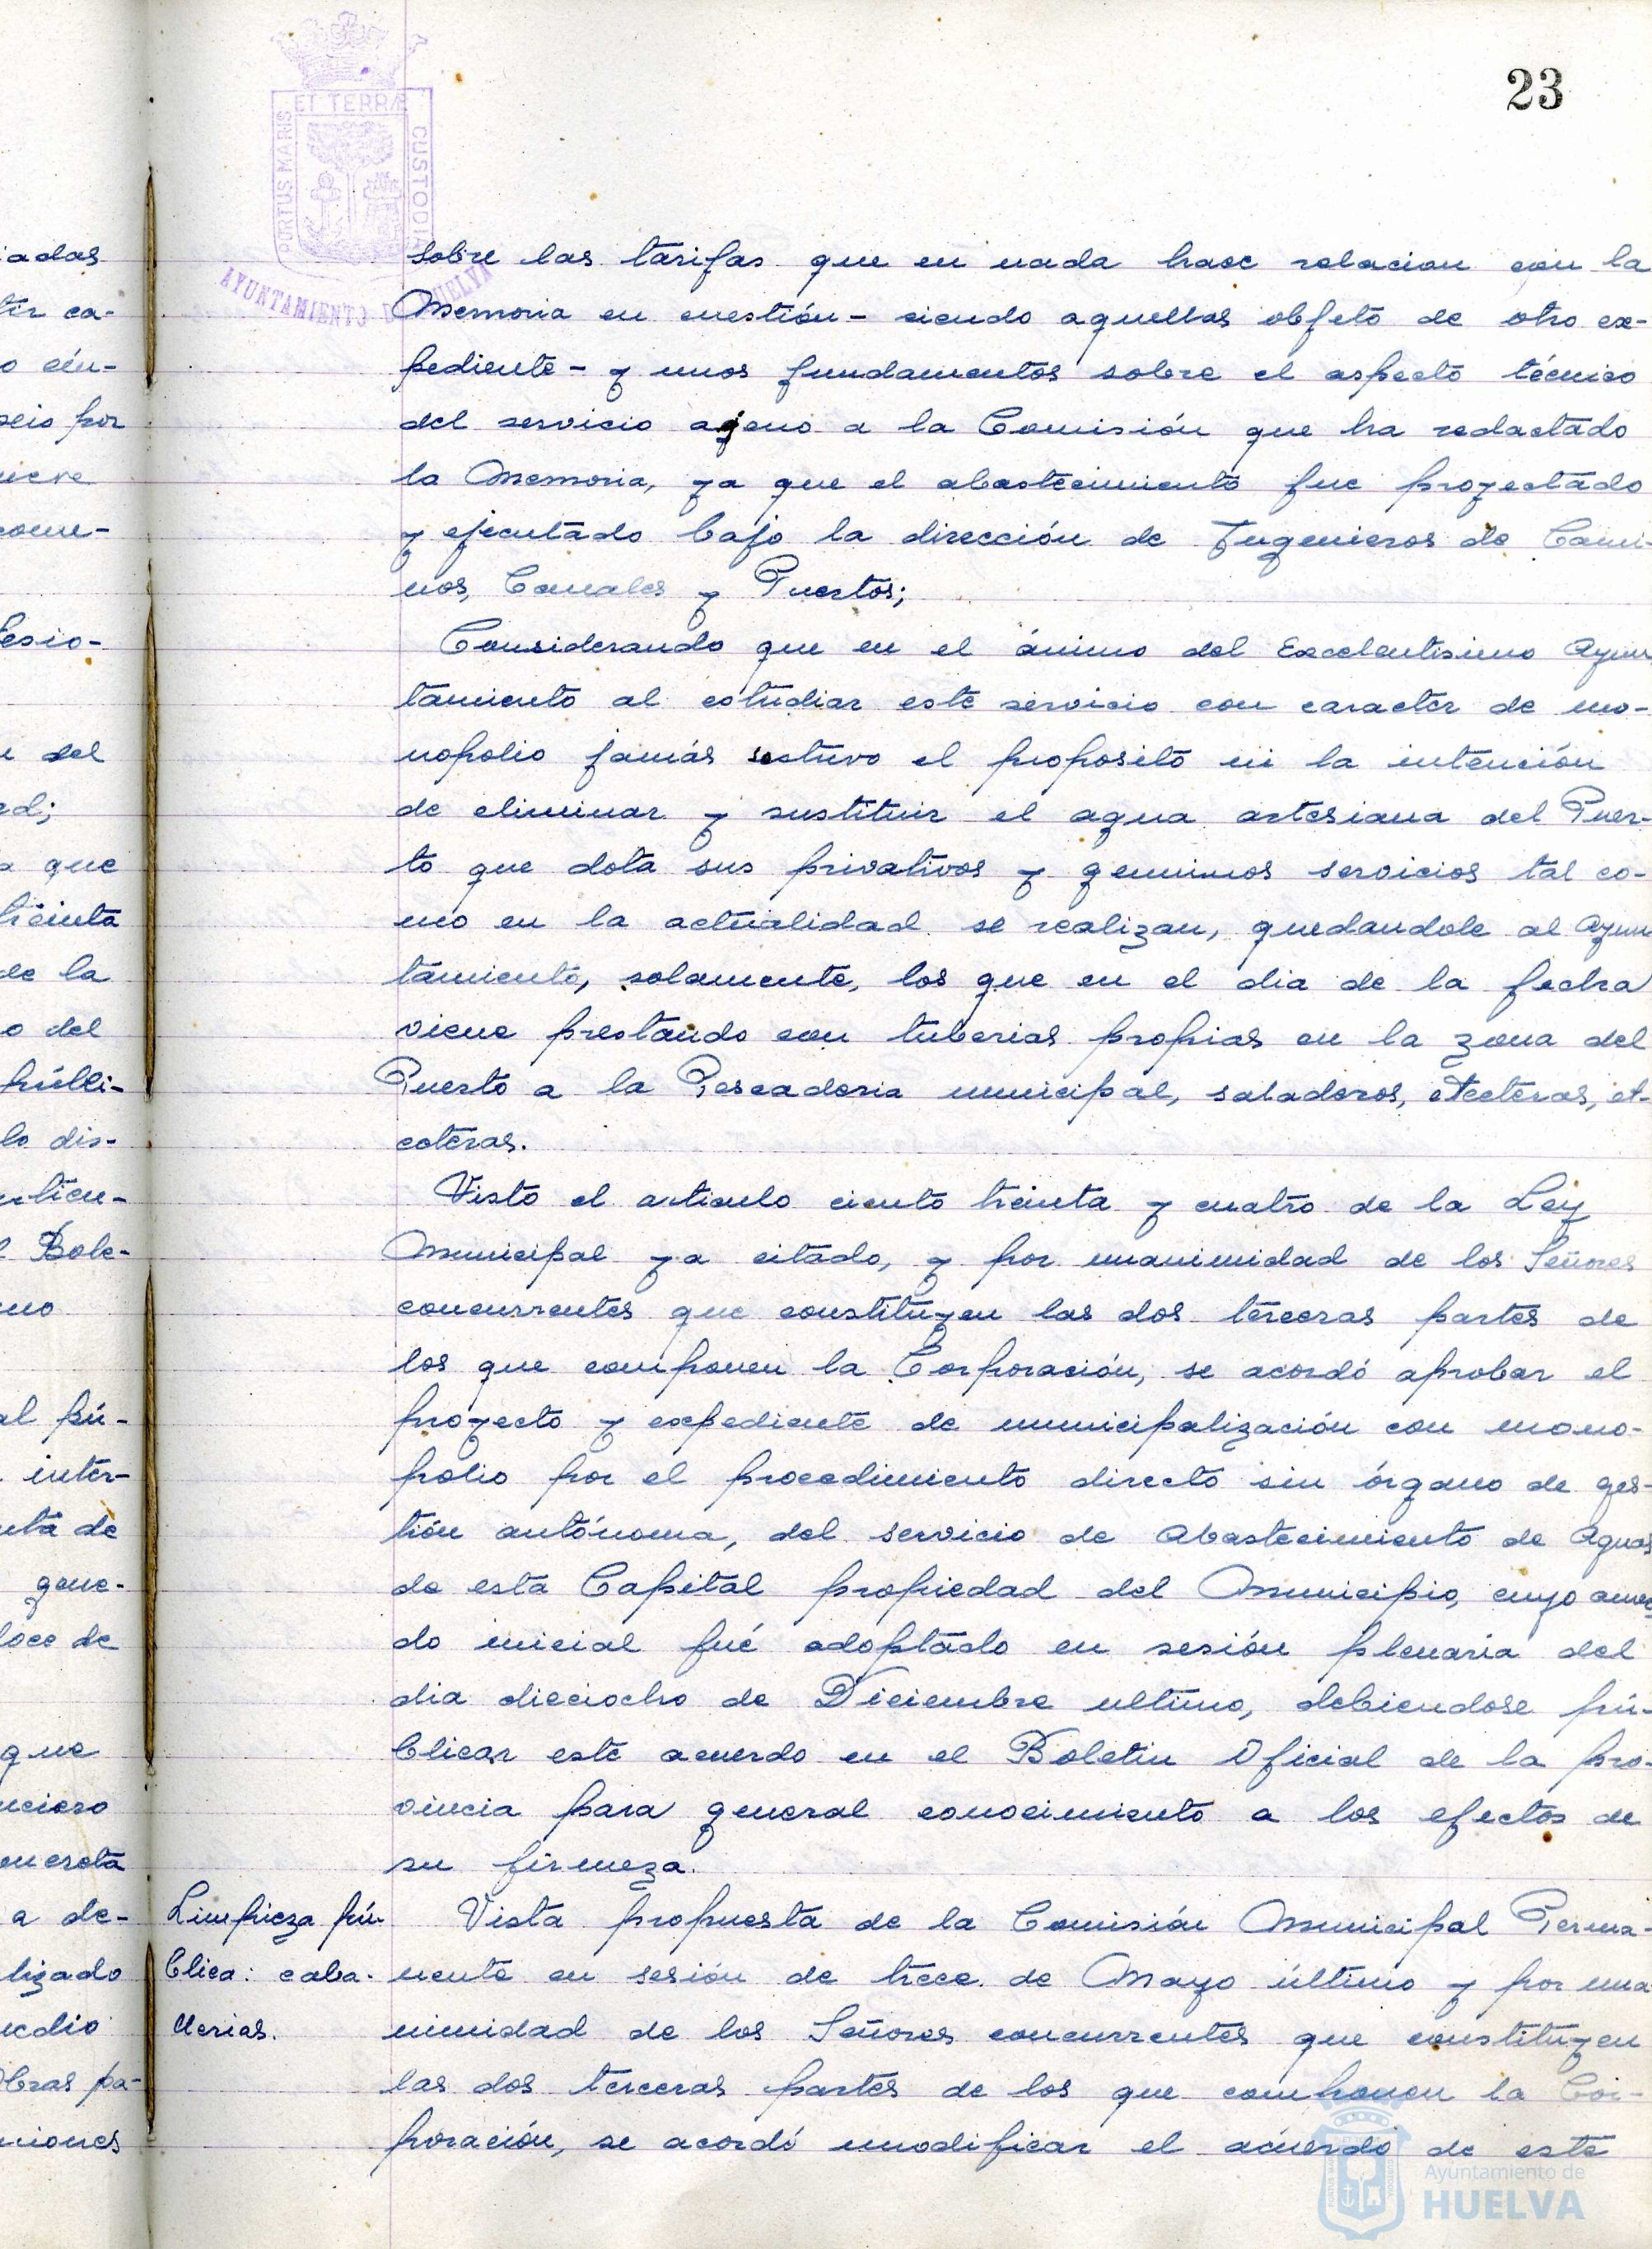 23
ET TERRÆ
PORTUS MARIS
CUSTODIA
AYUNTAMIENTO DE HUELVA
sobre las tarifas que en nada hace relacion con la
Memoria en cuestión - siendo aquellas objeto de otro ex-
pediente - y unos fundamentos sobre el aspecto técnico
del servicio ageno a la Comisión que ha redactado
la Memoria, ya que el abastecimiento fue proyectado
y ejecutado bajo la dirección de Ingenieros de Cami-
nos, Canales y Puertos;
Considerando que en el ánimo del Excelentisimo Ayun
tamiento al estudiar este servicio con caracter de mo-
nopolio jamás estuvo el proposito ni la intención
de eliminar y sustituir el agua artesiana del Puer-
to que dota sus privativos y genuinos servicios tal co-
mo en la actualidad se realizan, quedandole al Ayun
tamiento, solamente, los que en el dia de la fecha
viene prestando con tuberias propias en la zona del
Puerto a la Pescaderia municipal, saladeros, etceteras, et-
ceteras.
Visto el articulo ciento treinta y cuatro de la Ley
Municipal ya citado, y por unanimidad de los Señores
concurrentes que constituyen las dos terceras partes de
los que componen la Corporación, se acordó aprobar el
proyecto y expediente de municipalización con mono-
polio por el procedimiento directo sin órgano de ges-
tión autónoma, del servicio de Abastecimiento de Aguas
de esta Capital propiedad del Municipio, cuyo acuer
do inicial fué adoptado en sesión plenaria del
dia dieciocho de Diciembre ultimo, debiendose pú-
blicar este acuerdo en el Boletin Oficial de la pro-
vincia para general conocimiento a los efectos de
su firmeza.
Limpieza pú-
blica: caba-
llerias.
Vista propuesta de la Comisión Municipal Perma-
nente en sesión de trece de Mayo último y por una
nimidad de los Señores concurrentes que constituyen
las dos terceras partes de los que componen la Cor-
poración, se acordó modificar el acuerdo de este
Ayuntamiento de
HUELVA